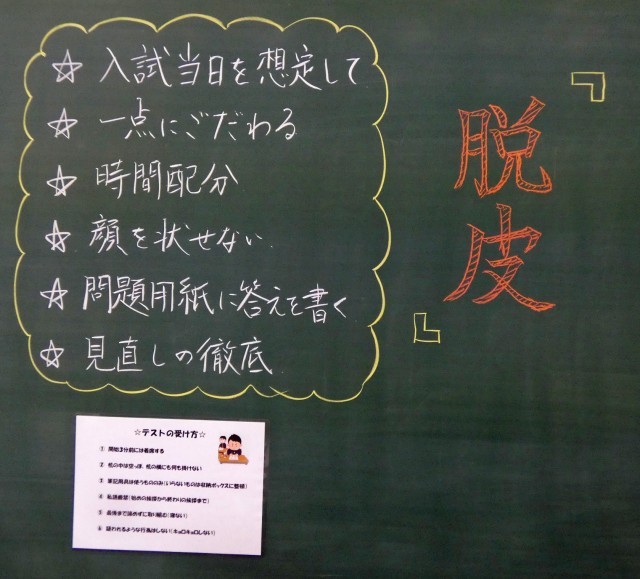 『脱皮』
☆ 入試当日を想定して
☆ 一点にごだわる
☆ 時間配分
☆ 顔を状せない
☆ 問題用紙に答えを書く
☆ 見直しの徹底
☆テストの受け方☆
① 開始3分前には着席する
② 机の中は空っぽ、机の横にも何も掛けない
③ 筆記用具は使うもののみ(いらないものは収納ボックスに整頓)
④ 私語厳禁(始めの挨拶から終わりの挨拶まで)
⑤ 最後まで諦めずに取り組む(寝ない)
⑥ 疑われるような行為はしない(キョロキョロしない)